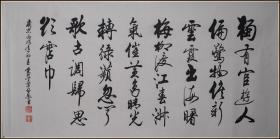 獨有宦遊人
偏驚物候新
雲霞出海曙
梅柳渡江春淑
氣催黃鳥晴光
轉綠蘋忽聞
歌古調歸思
欲霑巾